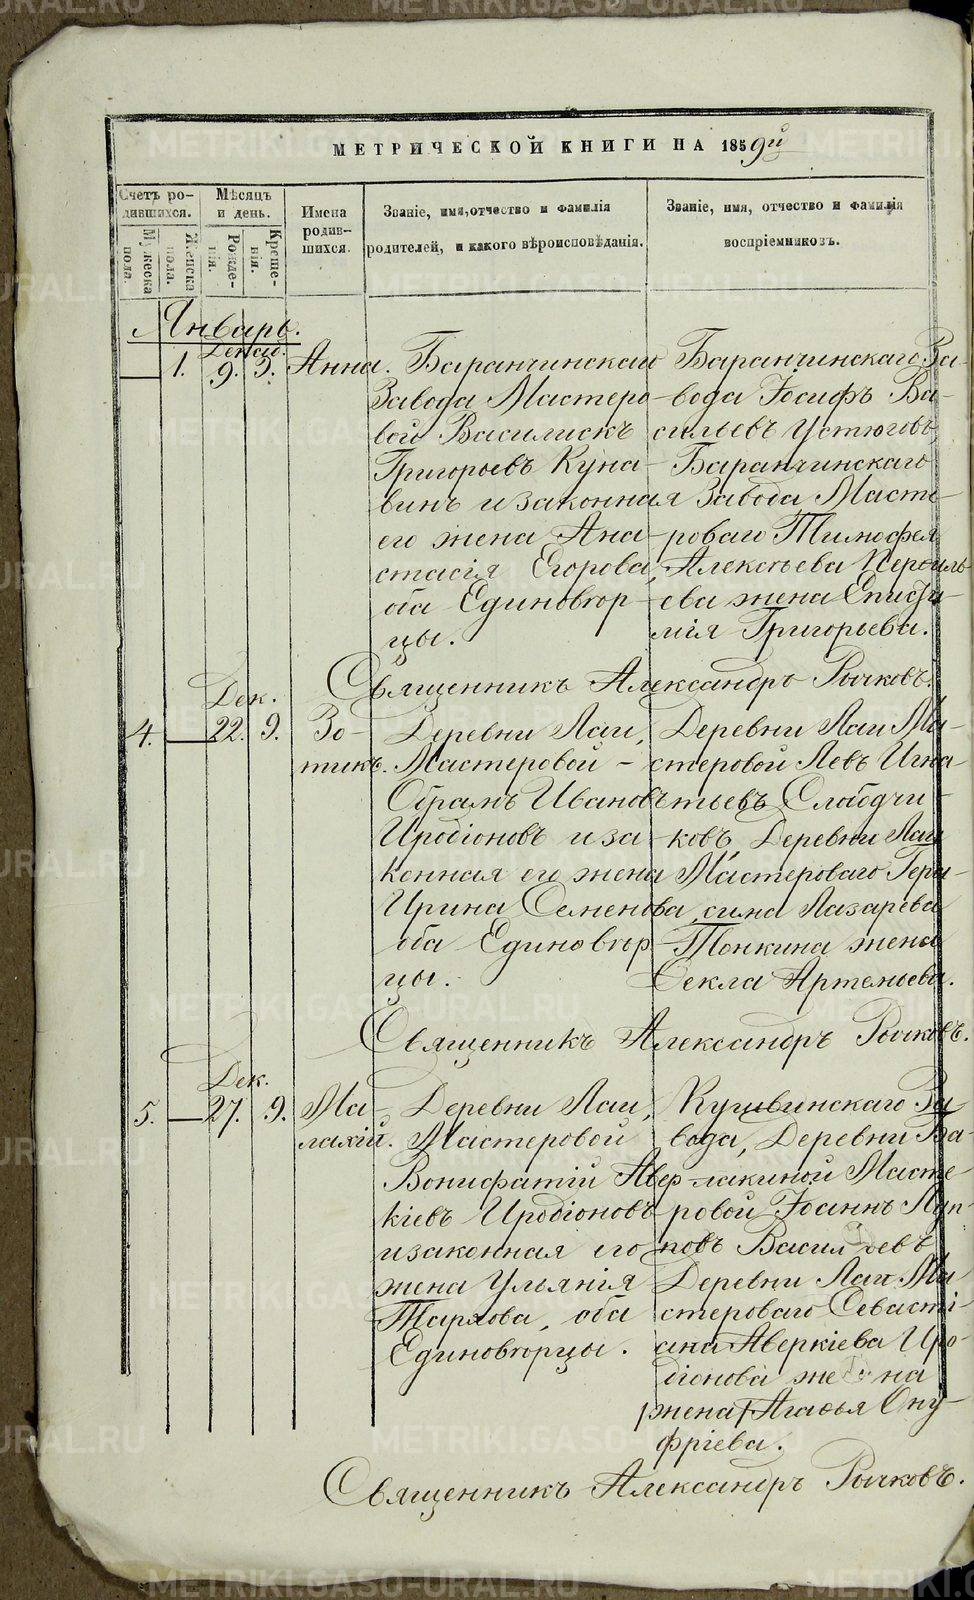 METRIKI.GASO-URAL.RU
МЕТРИЧЕСКОЙ КНИГИ НА 1859й
Счетъ ро-
дившихся.
Мѣсяцъ
и день.
Имена
родив-
шихся.
Званіе, имя, отчество и фамилія
родителей, и какого вѣроисповѣданія.
Званіе, имя, отчество и фамилія
воспріемниковъ.
Мужеска
пола.
Женска
пола.
Рожде-
нія.
Креще-
нія.
Январь.
1. 9. 3. Анна. Баранчинскаго
Завода Мастеро-
вой Василискъ
Григорьевъ Куна-
винъ и законная
его жена Ана-
стасія Егорова,
оба Единовѣр-
цы.
Баранчинскаго За-
вода Іосифъ Ва-
сильевъ Устюговъ,
Баранчинскаго
Завода Масте-
роваго Тимофея
Алексѣева
жена Еписти-
мія Григорьева.
Священникъ Александръ Рычковъ.
Дек.
4. 22. 9. Зо-
тикъ.
Деревни Лаи,
Мастеровой -
Обрамъ Ивановъ
Иродіоновъ и за-
конная его жена
Ирина Семенова,
оба Единовѣр-
цы.
Деревни Лаи Ма-
стеровой Левъ Игна-
тьевъ Слабодчи-
ковъ, Деревни Лаи
Мастероваго Гера-
сима Лазарева
Тонкина жена
Ѳекла Артемьева.
Священникъ Александръ Рычковъ.
Дек.
5. 27. 9. Ма-
лахій.
Деревни Лаи,
Мастеровой
Вонифатій Авер-
кіевъ Иродіоновъ
и законная его
жена Ульянія
Тархова, оба
Единовѣрцы.
Кушвинскаго За-
вода, Деревни Ба-
лакиной Масте-
ровой Іоаннъ Луп-
повъ Васильевъ
Деревни Лаи Ма-
стероваго Севасті-
ана Аверкіева Иро-
діонова жена
/жена/ Агаѳья Ону-
фріева.
Священникъ Александръ Рычковъ.